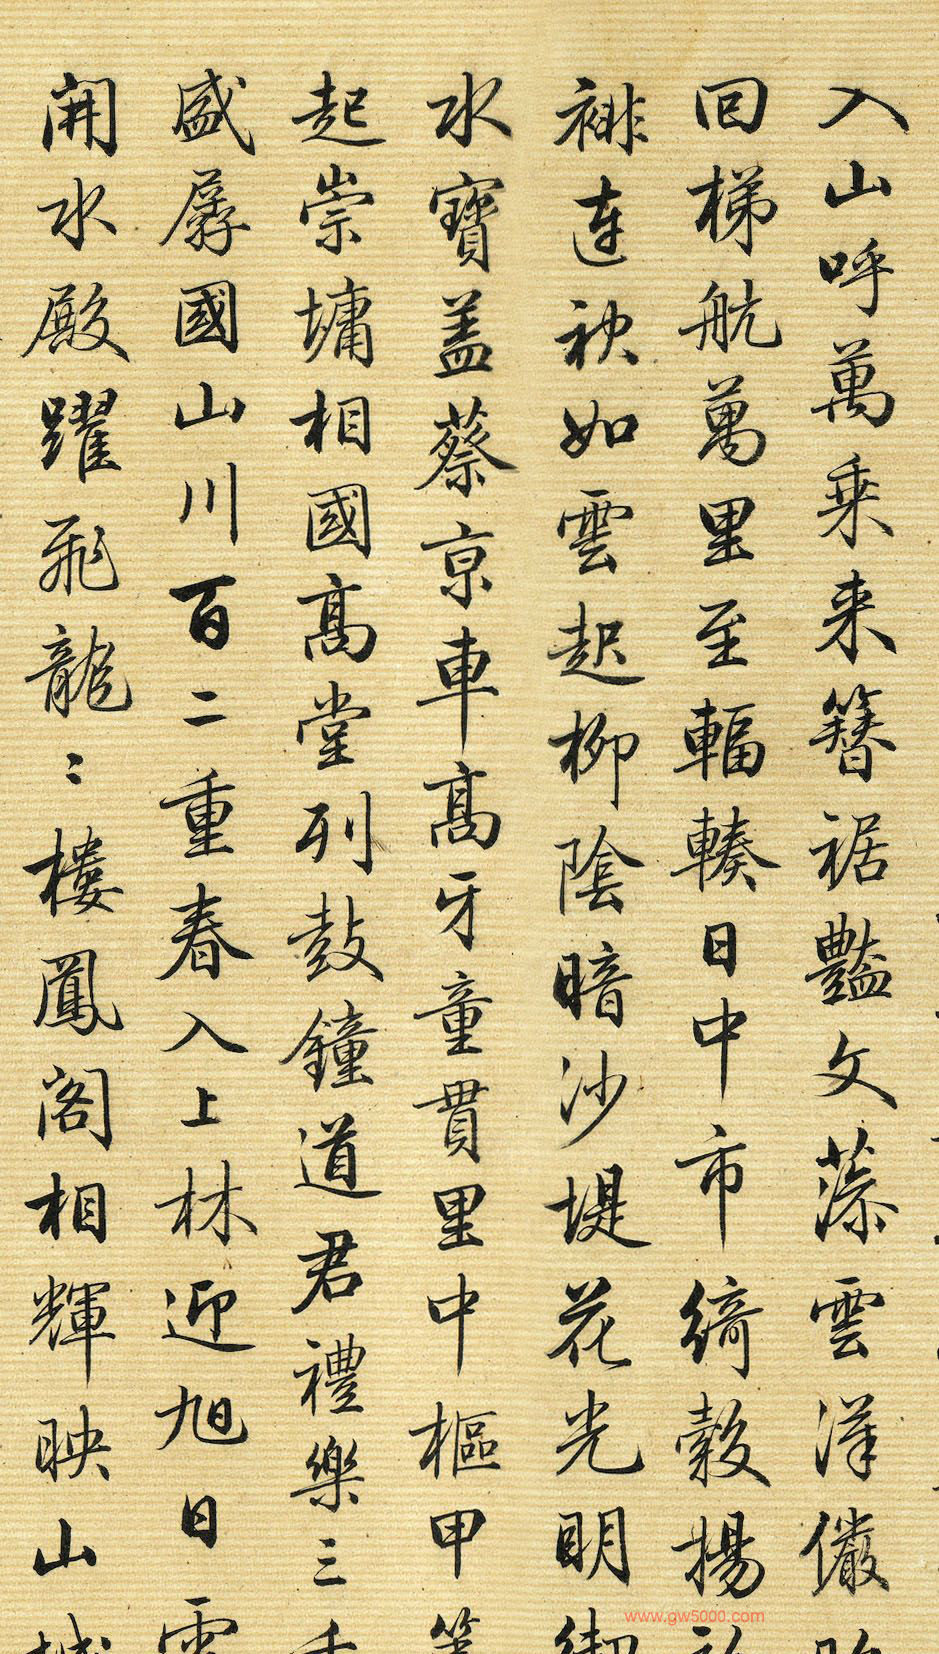 入山呼萬乗来簪裾豔文藻雲漢儼
回梯航萬里至輻輳日中市綺縠揚
裶連袂如雲起柳陰暗沙堤花光明御
水寶蓋蔡京車高牙童貫里中樞甲第
起崇墉相國高堂列鼓鐘道君禮樂三千
盛孱國山川百二重春入上林迎旭日雲
開水殿躍飛龍〻樓鳳閣相輝映山
www.gw5000.com